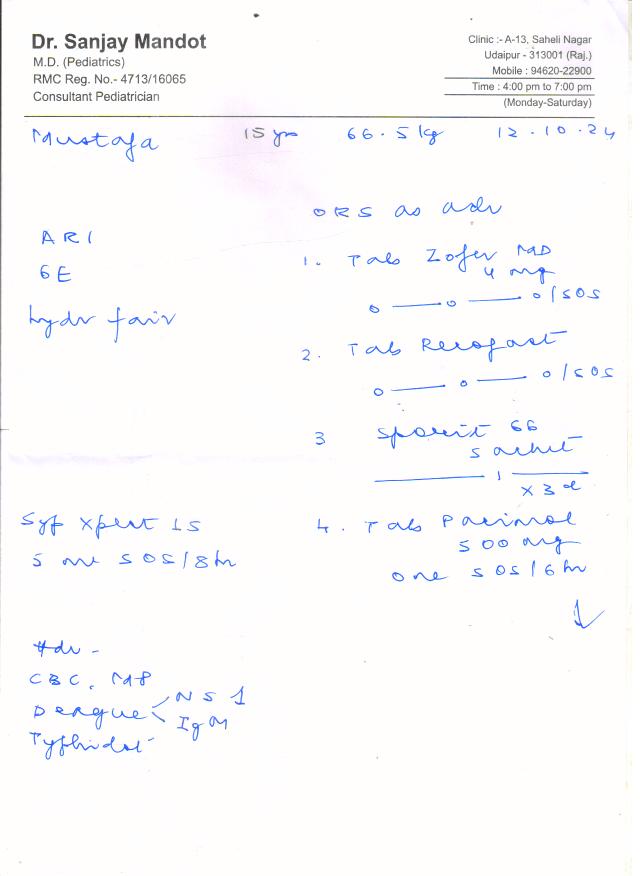 Dr. Sanjay Mandot
M.D. (Pediatrics)
RMC Reg. No.- 4713/16065
Consultant Pediatrician
Clinic :- A-13, Saheli Nagar
Udaipur - 313001 (Raj.)
Mobile : 94620-22900
Time : 4:00 pm to 7:00 pm
(Monday-Saturday)
Mustafa 15 yrs 66.5 kg 12.10.24
ARI
GE
hydr fair
ORS as adv
1. Tab Zofer MD
4 mg
0 — 0 — 0/SOS
2. Tab
0 — 0 — 0/SOS
3 Sporit GG
sachet
1
x 3 d
4. Tab Pacimol
500 mg
one SOS/6 hr
Syp Xpect LS
5 ml SOS/8 hr
Adv -
CBC, MP
Dengue < NS 1
IgM
Typhidot